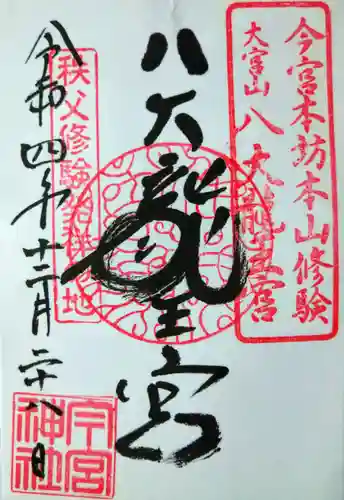 今宮本訪本山修験
大宮山 八大龍王宮
八大龍王宮
秩父修験発祥の地
令和四年十二月二十八日
今宮神社